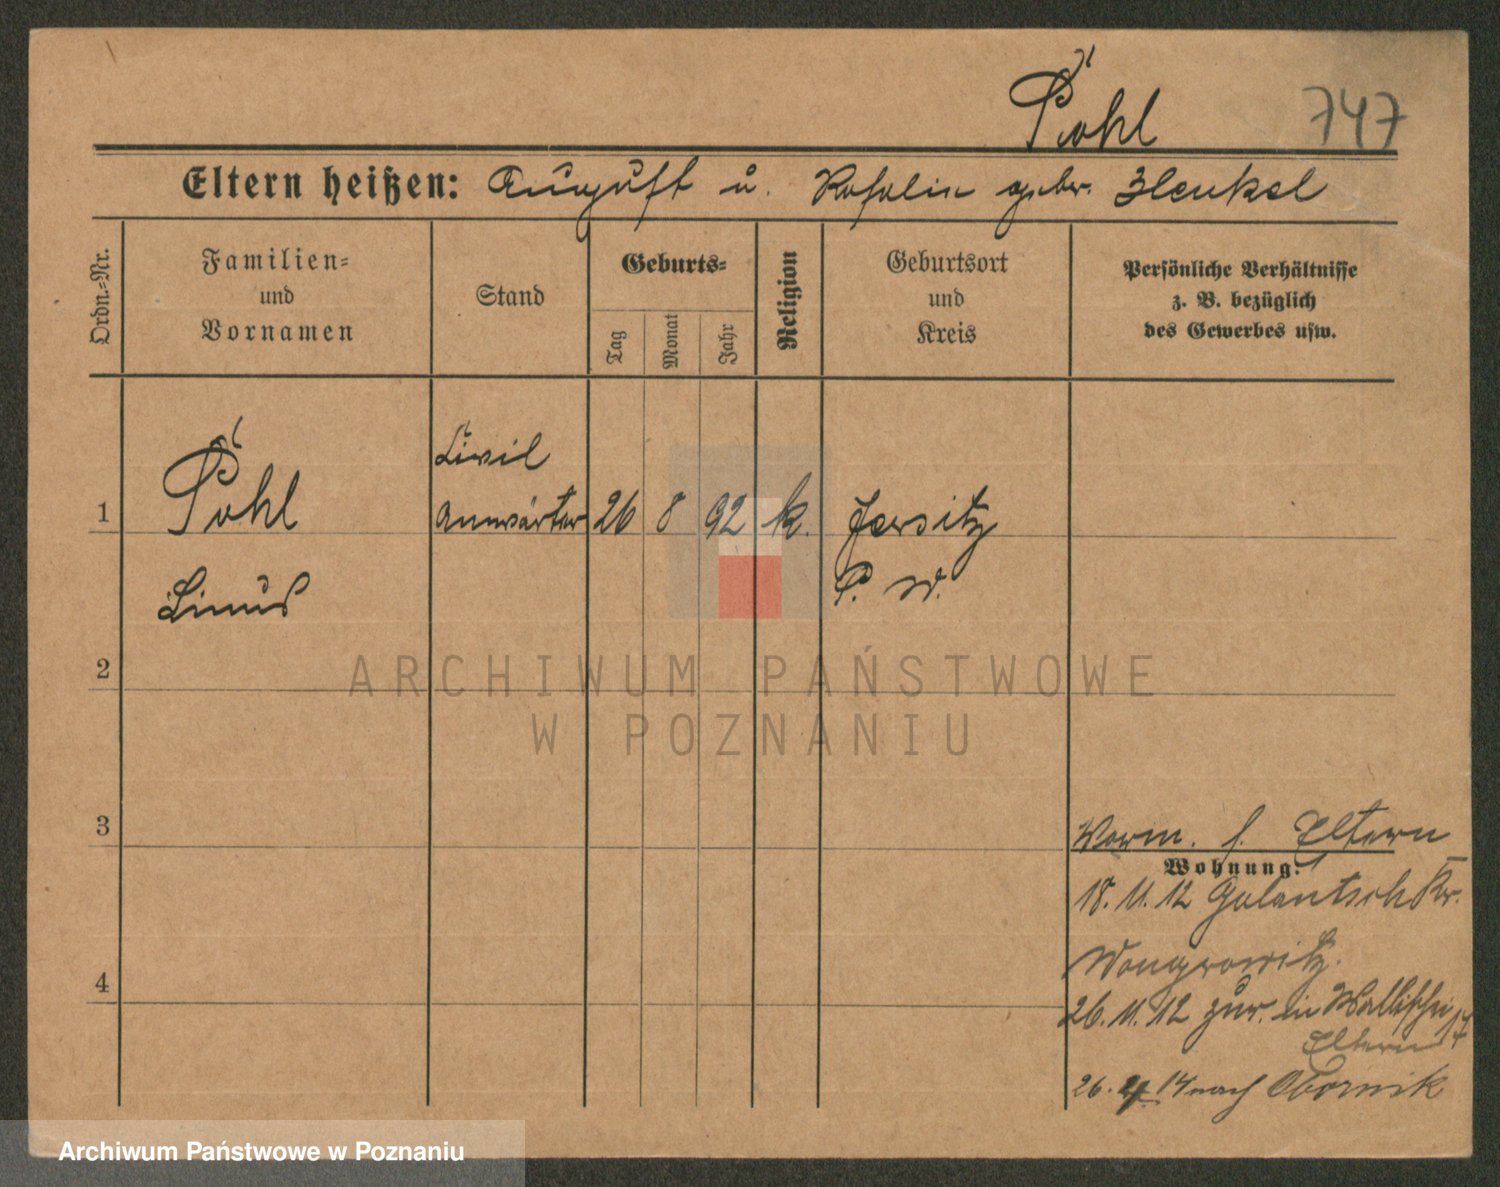 Pohl 747
Eltern heißen: August u. Rosalie gebr. Henkel
Ordn.=Nr.
Familien=
und
Vornamen
Stand
Geburts=
Tag
Monat
Jahr
Religion
Geburtsort
und
Kreis
Persönliche Verhältnisse
z. B. bezüglich
des Gewerbes usw.
Civil
1 Pohl Anwärter 26 8 92 k. Jersitz
Linus P. W.
2
3
4
Worm. s. Eltern
Wohnung:
18. 11. 12 Golantsch Kr.
Wongrowitz.
26. 11. 12 zur. in Wallischei 17
Eltern
26. 4. 14 nach Obornik
ARCHIWUM PAŃSTWOWE
W POZNANIU
Archiwum Państwowe w Poznaniu